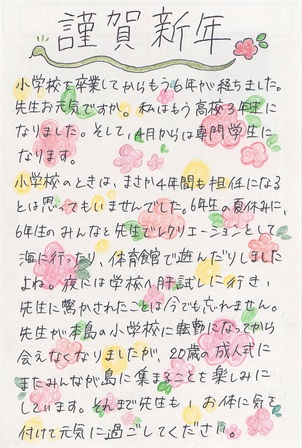 謹賀新年
小学校を卒業してからもう6年が経ちました。
先生お元気ですか。私はもう高校3年生に
なりました。そして、4月からは専門学生に
なります。
小学校のときは、まさか4年間も担任になる
とは思ってもいませんでした。6年生の夏休みに、
6年生のみんなと先生でレクリエーションとして
海に行ったり、体育館で遊んだりしました
よね。夜には学校へ肝試しに行き、
先生に驚かされたことは今でも忘れません。
先生が本島の小学校に転勤になってから
会えなくなりましたが、20歳の成人式に
またみんなが島に集まることを楽しみに
しています。それまで先生も、お体に気を
付けて元気に過ごしてください。